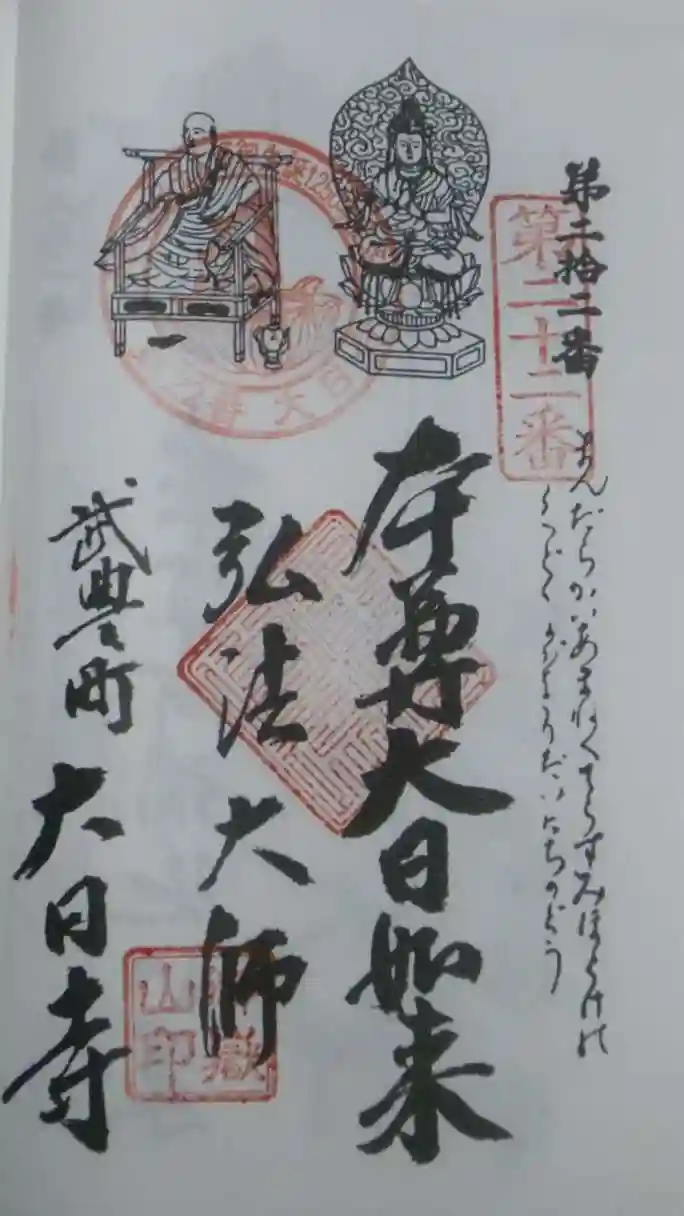 第二拾二番
第二十二番
まんだらかいあまねくてらすみほとけの
だいにちのどう
本尊大日如来
弘法大師
武豊町 大日寺
嶽山印